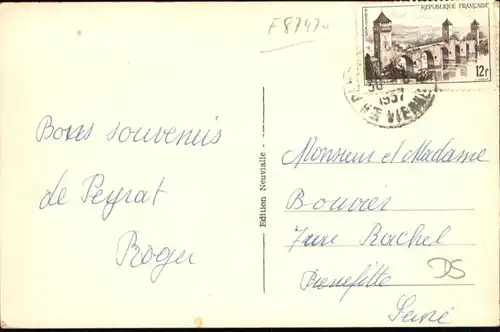 F8747
REPUBLIQUE FRANÇAISE
12F
1957
HTE VIENNE
Bons souvenirs
de Peyrat
Roger
Edition Neuvialle
Monsieur et Madame
Bouvier
7 rue Rachel
Pierrefitte
Seine
DS